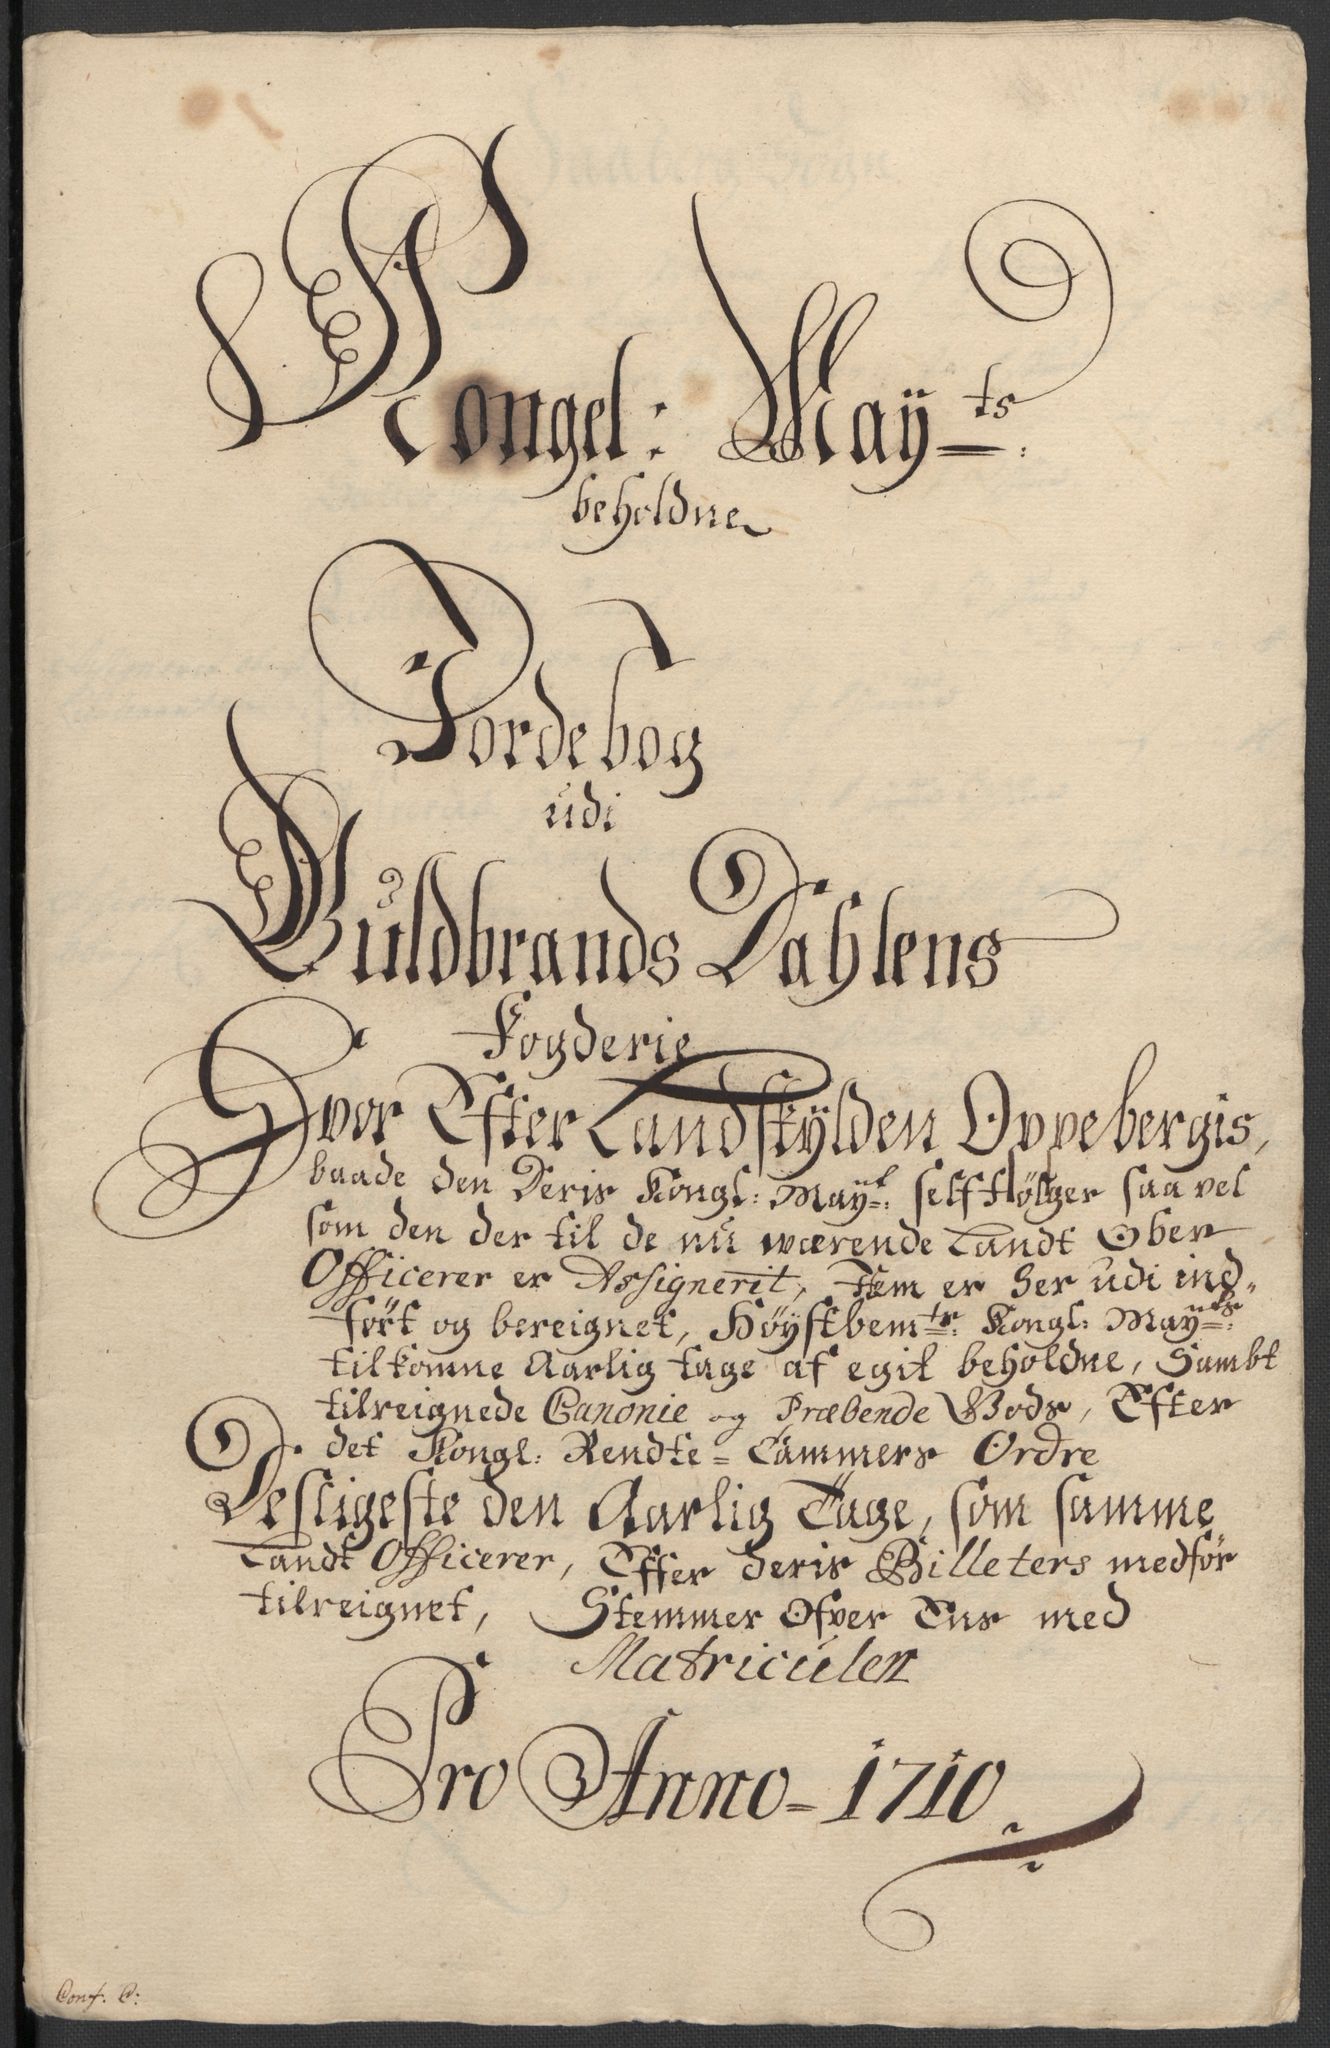 Kongel: Mayts:
beholdne
Jordebog
udi
Guldbrands Dahlens
Fogderie
Hvor Efter Landskÿlden Oppebergis,
baade den Deris Kongl: Mayt: self følger saa vel
som den der til de nu wærende Landt Ober
Officerer er Assignerit, Item er her udi ind-
ført og bereignet, Høÿstbemte: Kongl: Mayts:
tilkomne Aarlig tage af egit beholdne, Sambt
tilreignede Canonie og Præbende Gods, Efter
det Kongl: Rendte-Cammers Ordre
Desligeste den Aarlig Tage, som samme
Landt Officerer, Effter deris Billeters medför
tilreignet, Stemmer Ofver Ens med
Matriculen
Pro Anno-1710
Conf. C: